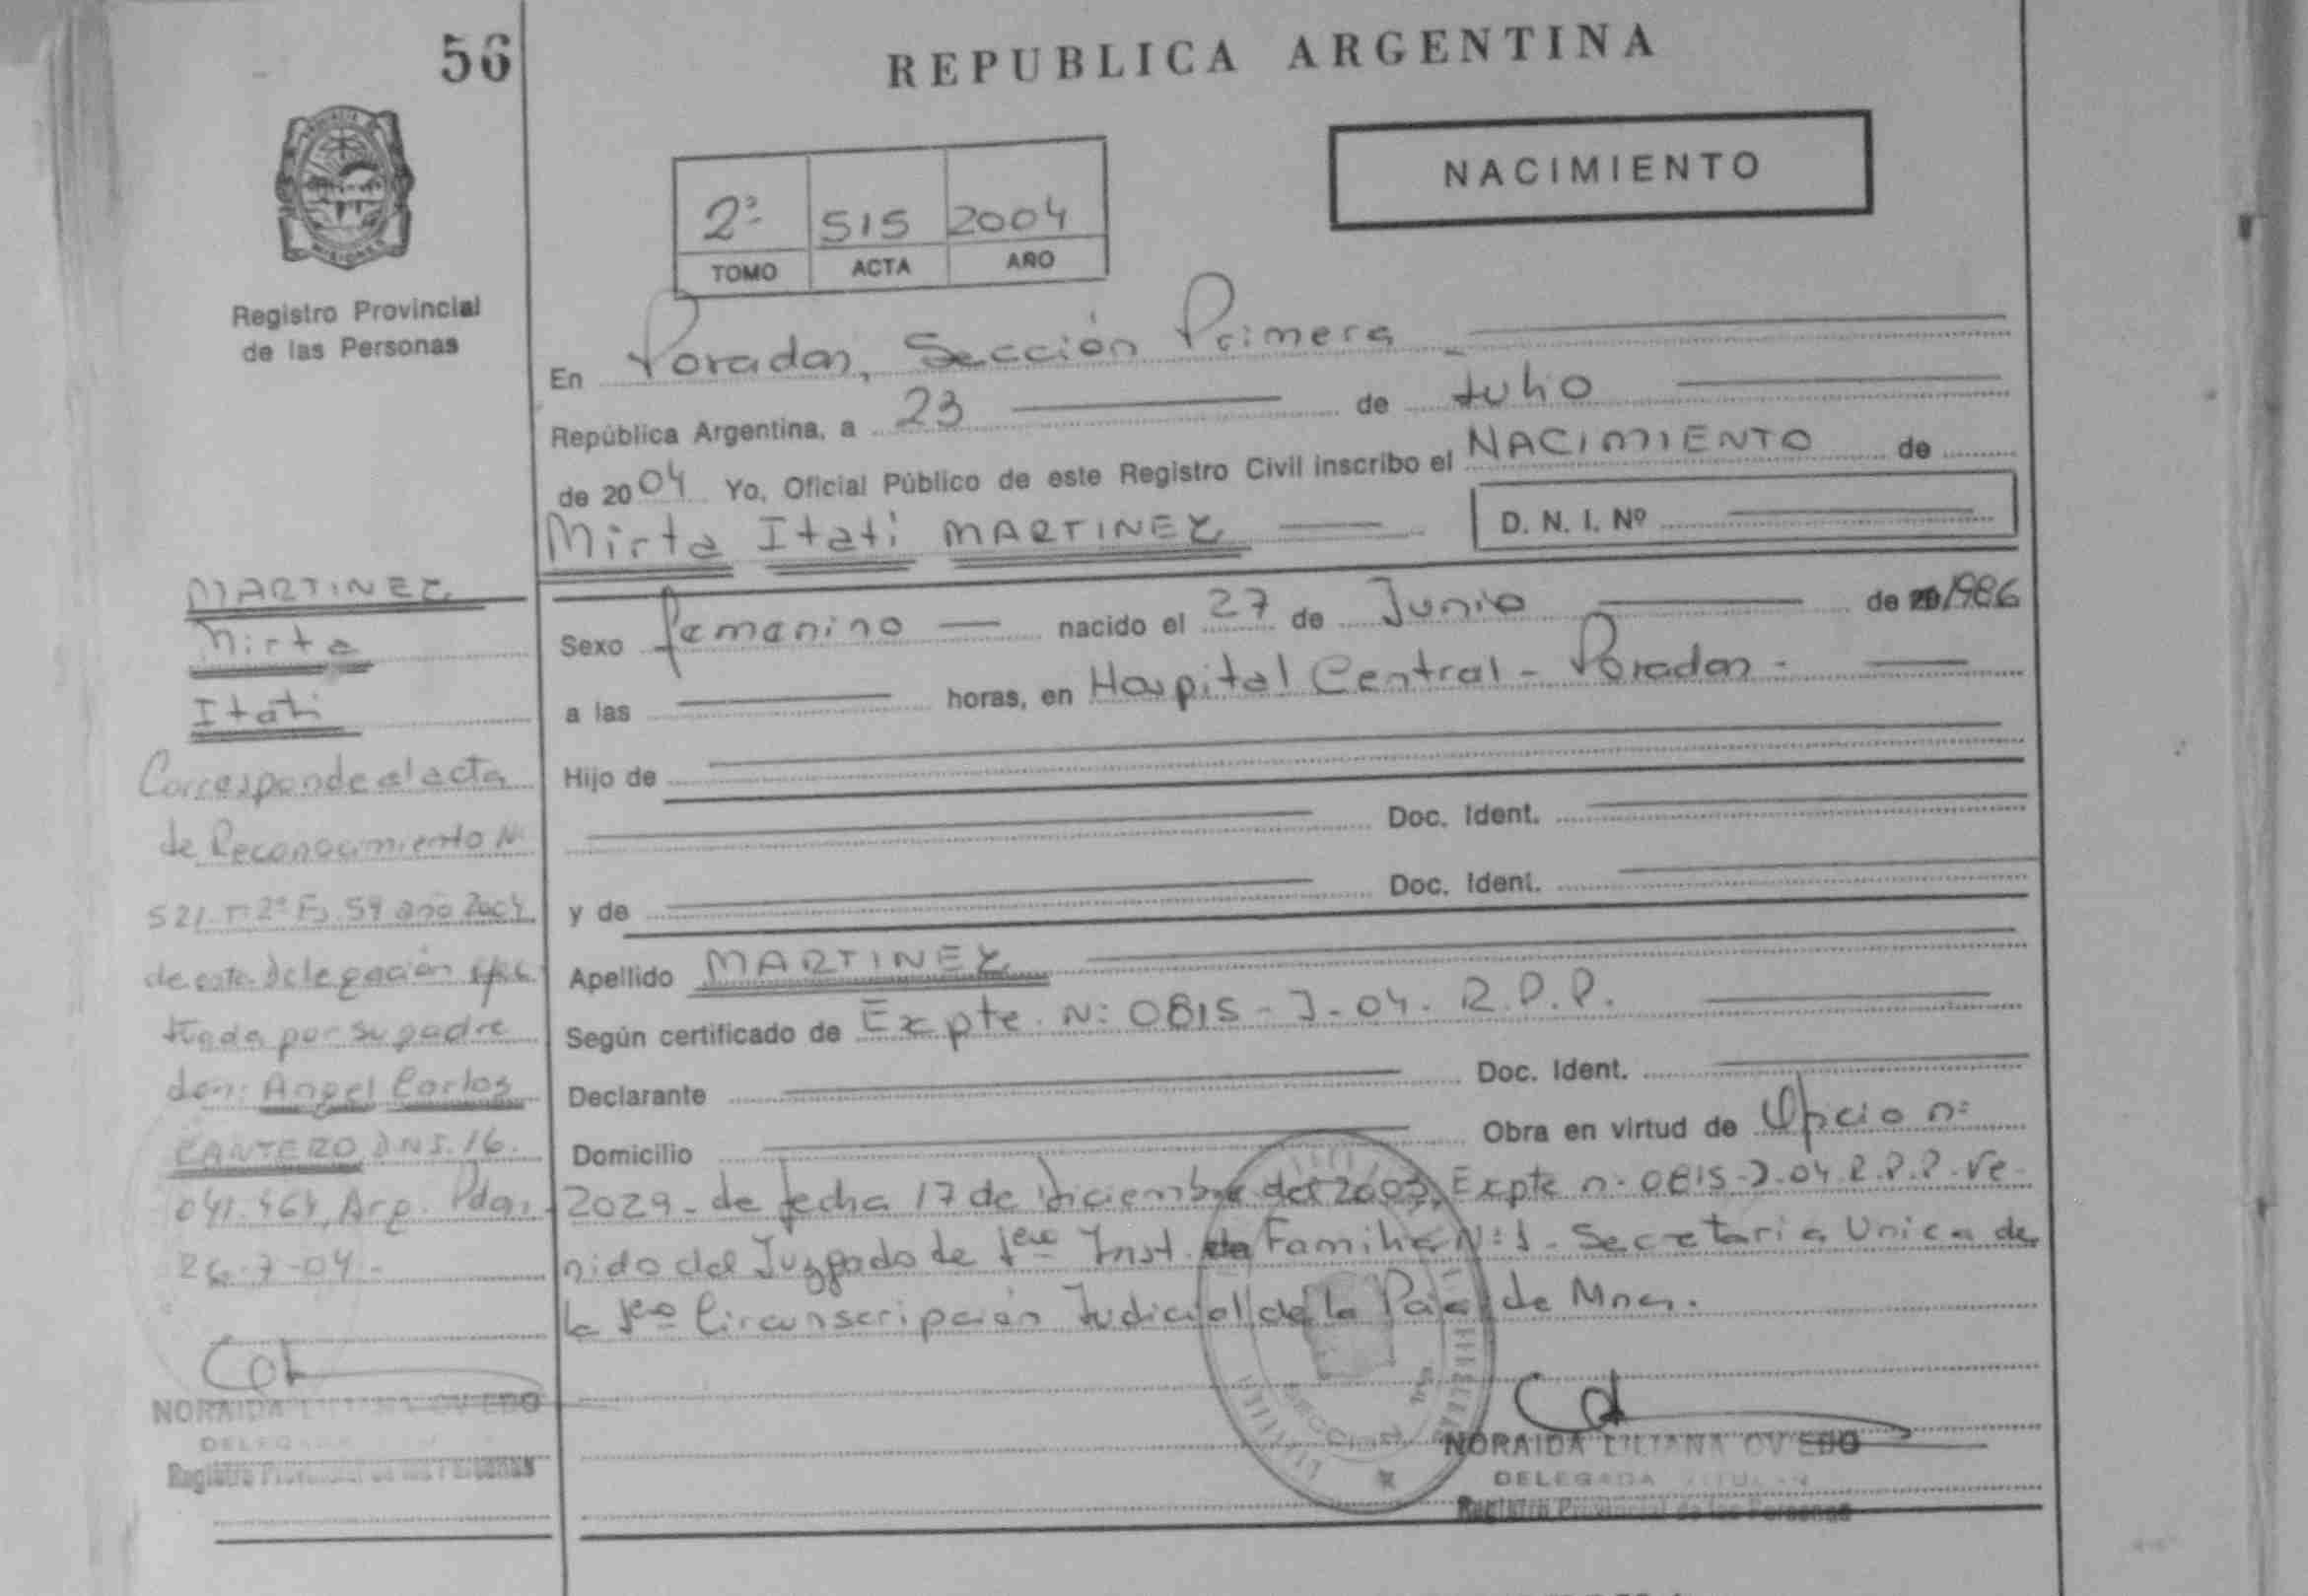 56
REPUBLICA ARGENTINA
NACIMIENTO
2º 515 2004
TOMO ACTA AÑO
Registro Provincial
de las Personas
En Posadas, Sección Primera
República Argentina, a 23 de Julio
de 2004 Yo, Oficial Público de este Registro Civil inscribo el NACIMIENTO de
Mirta Itati MARTINEZ
D. N. I. Nº
Sexo femenino nacido el 27 de Junio de 1986
a las horas, en Hospital Central - Posadas -
Hijo de
Doc. Ident.
y de Doc. Ident.
Apellido MARTINEZ
Según certificado de Expte. Nº 0815-J-04. R.P.P.
Declarante Doc. Ident.
Domicilio Obra en virtud de Oficio nº
2029 - de fecha 17 de diciembre del 2003, Expte nº 0815-J-04 R.P.P. Ve-
nido del Juzgado de 1era Inst. de Familia Nº 1 - Secretaria Unica de
la 1era Circunscripción Judicial de la Pcia de Mnes.
NORAIDA LILIANA OVIEDO
DELEGADA TITULAR
Registro Provincial de las Personas
MARTINEZ
Mirta
Itati
Corresponde al acta
de Reconocimiento Nº
521 Tº 2º Fº 59 año 2004
de esta Delegación efec
tuada por su padre
don: Angel Carlos
CANTERO DNI. 16.
041.464, Arg. Pdas,
26-7-04-
NORAIDA LILIANA OVIEDO
DELEGADA
Registro Provincial de las Personas